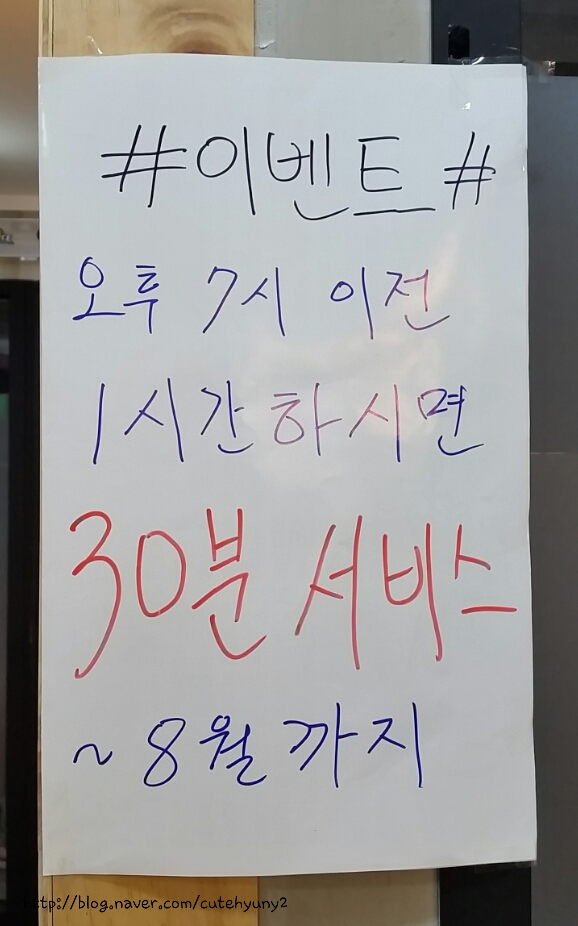 #이벤트#
오후 7시 이전
1시간하시면
30분 서비스
~8월까지
http://blog.naver.com/cutehyuny2